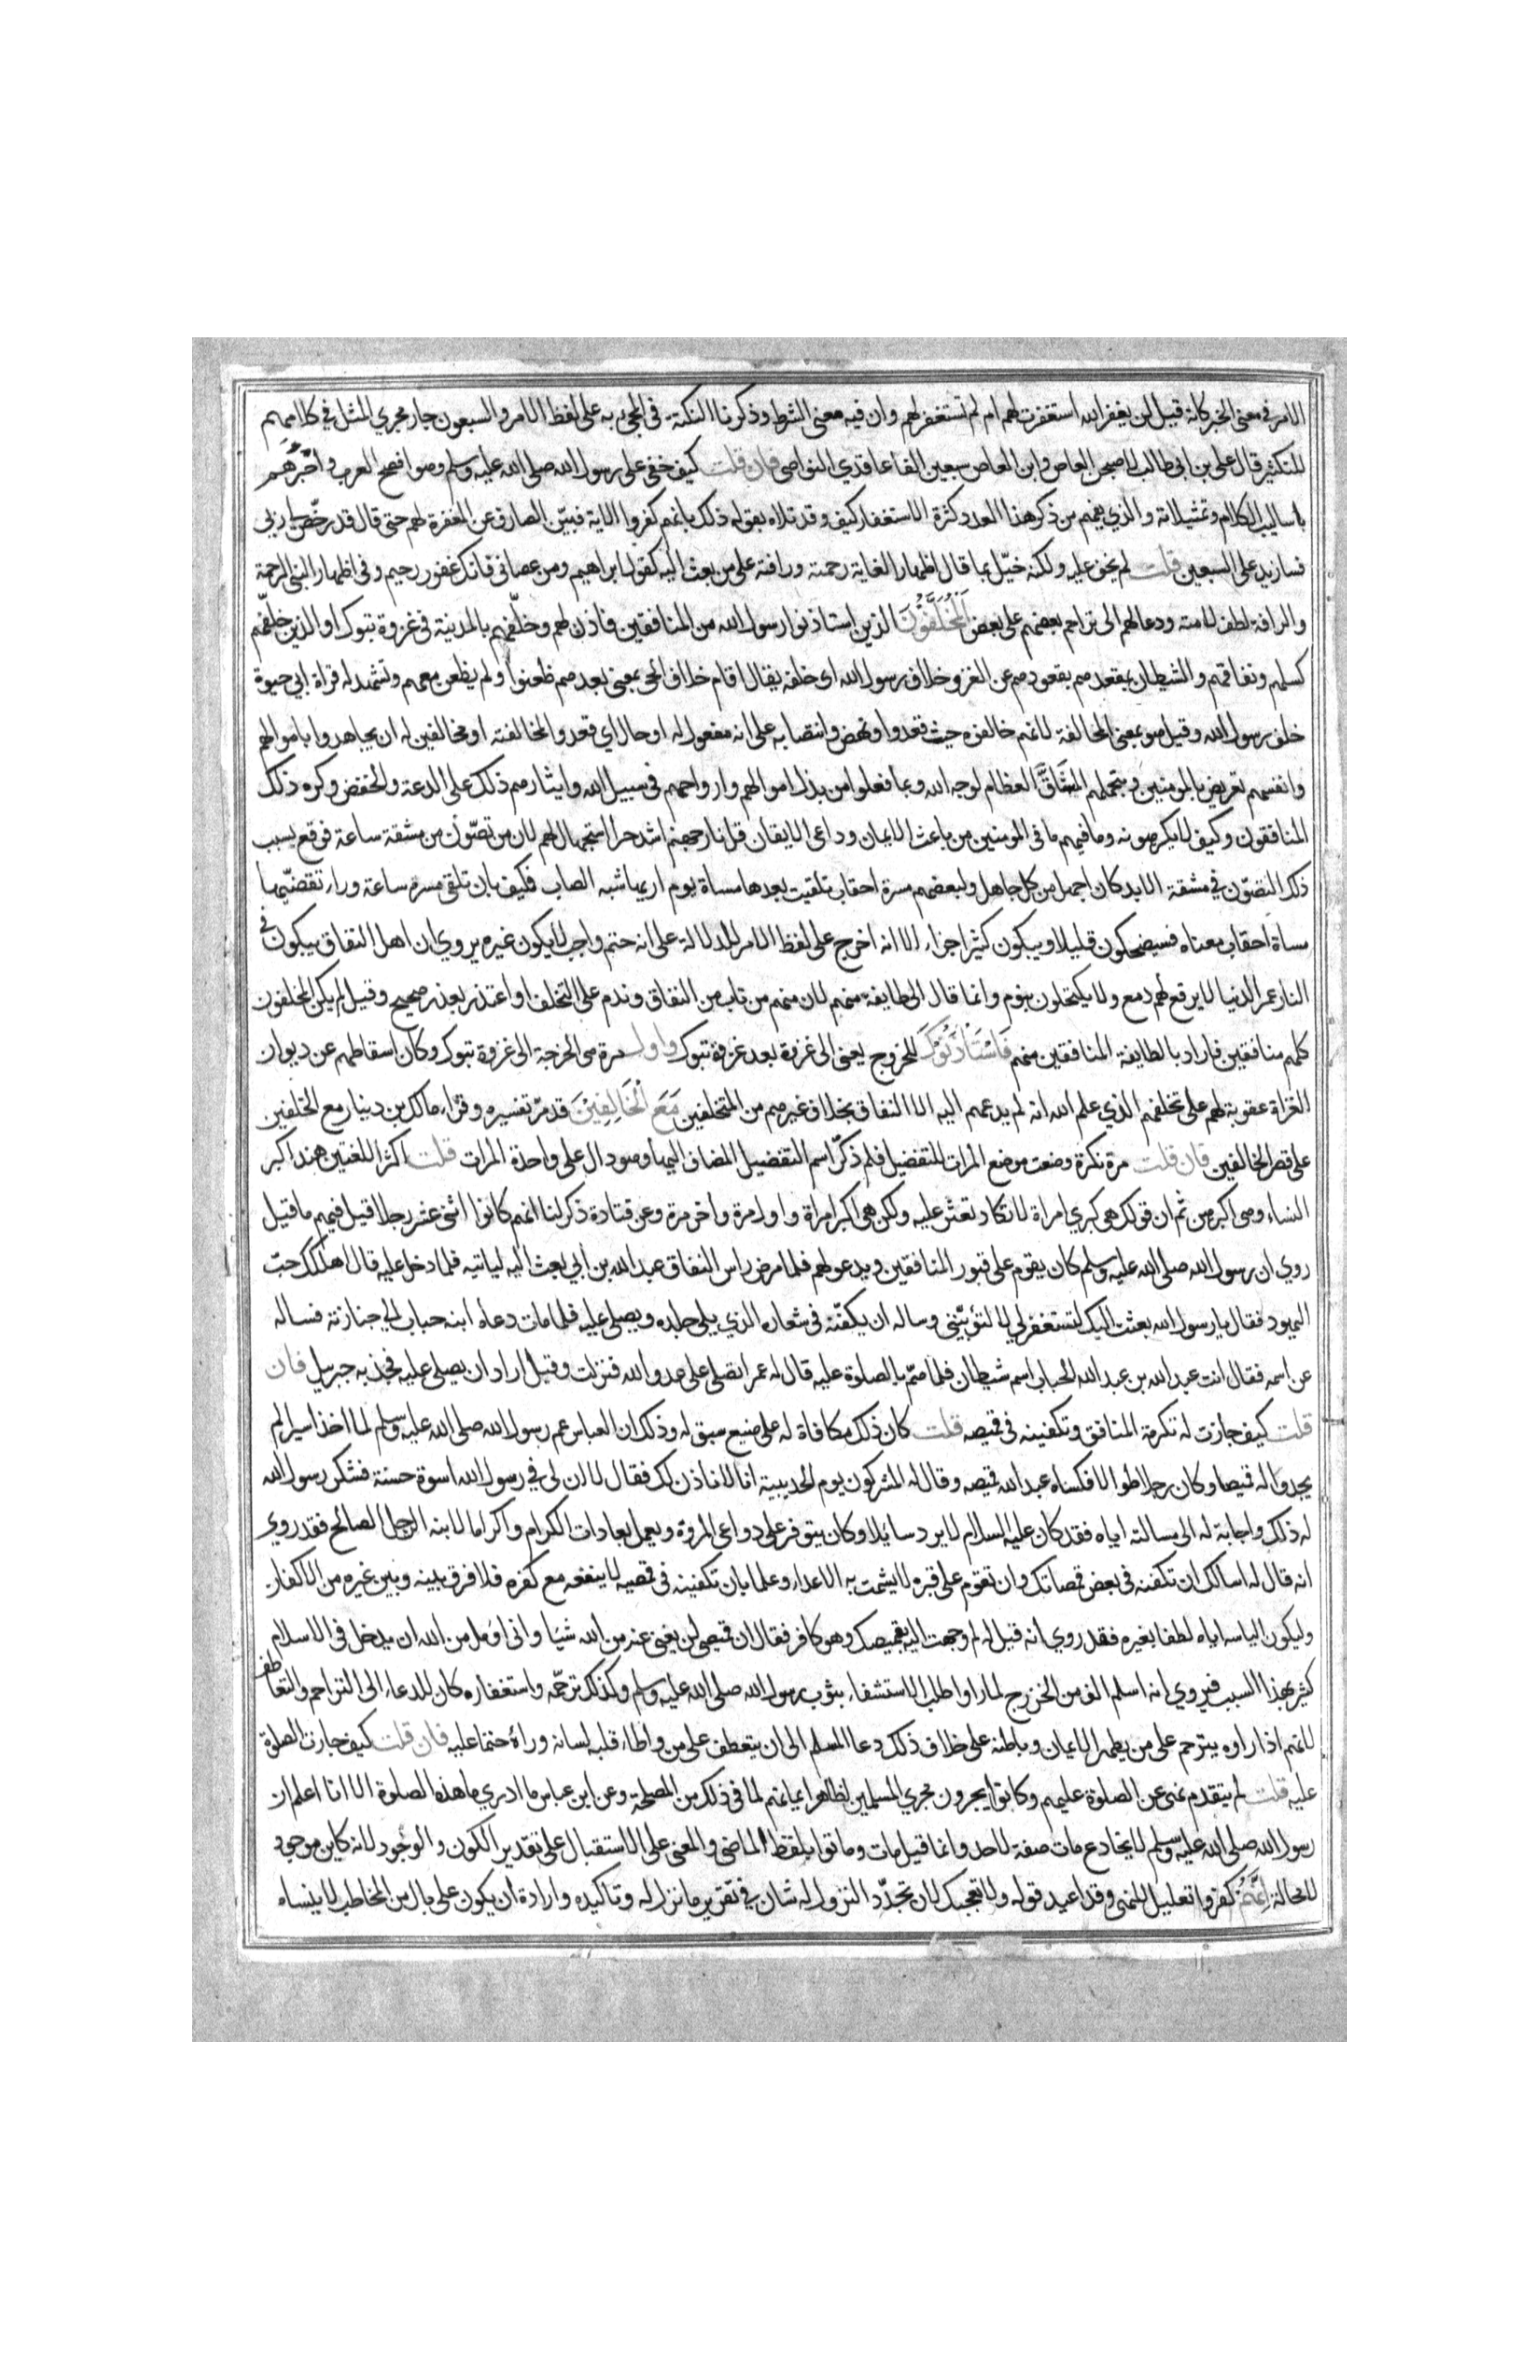 الامر في معنى الخبر كانه قيل لن يغفر الله استغفرت لهم ام لم تستغفر لهم وان فيه معنى الشرط وذكرنا النكتة في المجيء به على لفظ الامر والسبعون جار مجري المثل في كلامهم
للتكثير قال علي بن ابي طالب لاصبحن العاص وابن العاص سبعين الفا عاقدي النواصي فان قلت كيف خفي على رسول الله صلى الله عليه وسلم وهو افصح العرب واخبرهم
باساليب الكلام وتمثيلاته والذي يفهم من ذكر هذا العدد كثرة الاستغفار كيف وقد تلاه بقوله ذلك بانهم كفروا الاية فبين الصارف عن المغفرة لهم حتى قال قد رخص لي ربي
فسازيد على السبعين قلت لم يخف عليه ولكنه خيّل بما قال اظهارا لغاية رحمته ورافته على من بعث اليه كقول ابراهيم ومن عصاني فانك غفور رحيم وفي اظهار النبي الرحمة
والرافة لطف لامته ودعا لهم الى تراحم بعضهم على بعض اَلْمُخَلَّفُوْنَ الذين استاذنوا رسول الله من المنافقين فاذن لهم وخلّفهم بالمدينة في غزوة تبوك او الذين خلّفهم
كسلهم ونفاقهم والشيطان بمقعدهم بقعودهم عن الغزو خلاف رسول الله اى خلفه يقال اقام خلاف الحى بمعنى بعدهم ظعنوا ولم يظعن معهم وتشهد له قراة ابي حيوة
خلف رسول الله وقيل هو بمعنى المخالفة لانهم خالفوه حيث قعدوا ونهض وانتصابه على انه مفعول له او حال اي قعدوا لمخالفته او مخالفين له ان يجاهدوا باموالهم
وانفسهم تعريض بالمومنين وبتحملهم المشَاقَّ العظام لوجه الله وبما فعلوا من بذل اموالهم وارواحهم في سبيل الله وايثارهم ذلك على الدعة والخفض وكره ذلك
المنافقون وكيف لا يكرهونه وما فيهم ما في المومنين من باعث الايمان وداعى الايقان قل نار جهنم اشد حرا استجهال لهم لان من تصوّن من مشقة ساعة فوقع بسبب
ذلك التصوّن في مشقة الابد كان اجهل من كل جاهل ولبعضهم مسرة احقاب تلقيت بعدها مساة يوم اريها شبه الصاب فكيف بان تلقى مسرة ساعة وراء تقضّيها
مساة احقاب معناه فسيضحكون قليلا ويبكون كثيرا جزاء الا انه اخرج على لفظ الامر للدلالة على انه حتم واجب لا يكون غيره يروي ان اهل النفاق يبكون في
النار عمر الدنيا لا يرقع لهم دمع ولا يكتحلون بنوم وانما قال الى طايفة منهم لان منهم من تاب من النفاق وندم على التخلف او اعتذر بعذر صحيح وقيل لم يكن المخلفون
كلهم منافقين فاراد بالطايفة المنافقين منهم فَاسْتَاْذَنُوْكَ للخروج يعنى الى غزوة بعد غزوة تبوك واول مرة هى الخرجة الى غزوة تبوك وكان اسقاطهم عن ديوان
الغزاة عقوبة لهم على تخلفهم الذي علم الله انه لم يدعهم اليه الا النفاق بخلاف غيرهم من المتخلفين مَعَ الْخَالِفِيْنَ قد مرّ تفسيره وقراء مالك بن دينار مع الخلفين
على قصر الخالفين فان قلت مرة نكرة وضعت موضع المرات للتفضيل فلم ذكّر اسم التفضيل المضاف اليها وهو دال على واحدة المرات قلت اكثر اللغتين هند اكبر
النساء وهى اكبرهن ثم ان قولك هى كبري امراة لا تكاد تعثر عليه ولكن هى اكبر امراة واول مرة واخر مرة وعن قتادة ذكر لنا انهم كانوا اثنى عشر رجلا قيل فيهم ما قيل
روي ان رسول الله صلى الله عليه وسلم كان يقوم على قبور المنافقين ويدعو لهم فلما مرض راس النفاق عبد الله بن أبي بعث اليه لياتيه فلما دخل عليه قال اهلكك حبّ
اليهود فقال يا رسول الله بعثت اليك لتستغفر لي لا لتؤنّبني وساله ان يكفّنه في شعاره الذي يلى جلده ويصلى عليه فلما مات دعاه ابنه حباب الى جنازته فساله
عن اسمه فقال انت عبد الله بن عبد الله الحباب اسم شيطان فلما همّ بالصلوة عليه قال له عمر اتصلى على عدو الله فنزلت وقيل اراد ان يصلى عليه فجذبه جبريل فان
قلت كيف جازت له تكرمة المنافق وتكفينه في قميصه قلت كان ذلك مكافاة له على صنيع سبق له وذلك ان العباس عم رسول الله صلى الله عليه وسلم لما اخذ اسيرا لم
يجدوا له قميصا وكان رجلا طوالا فكساه عبد الله قميصه وقال له المشركون يوم الحديبية انا لا ناذن لك فقال لا ان لى في رسول الله اسوة حسنة فشكر رسول الله
له ذلك واجابة له الى مسالته اياه فقد كان عليه السلام لا يرد سايلا وكان يتوفر على دواعى المروة ويعمل بعادات الكرام واكراما لابنه الرجل الصالح فقد روي
انه قال له اسالك ان تكفنه في بعض قمصانك وان تقوم على قبره لا يشمت به الاعداء وعلما بان تكفينه في قميصه لا ينفعه مع كفره فلا فرق بينه وبين غيره من الاكفان
وليكون الباسه اياه لطفا بغيره فقد روي انه قيل له لم وجهت اليه بقميصك وهو كافر فقال ان قميصى لن يغنى عنه من الله شيا وانى اوَمل من الله ان يدخل في الاسلام
كثير بهذا السبب فيروي انه اسلم الف من الخزرج لما راوا طلب الاستشفاء بثوب رسول الله صلى الله عليه وسلم وكذلك ترحّمه واستغفاره كان للدعاء الى التراحم والتعاطف
لانهم اذا راوه يترحم على من يظهر الايمان وباطنه على خلاف ذلك دعا المسلم الى ان يتعطف على من واطاء قلبه لسانه وراه حتما عليه فان قلت كيف جازت الصلوة
عليه قلت لم يتقدم نهى عن الصلوة عليهم وكانوا يجرون مجري المسلمين لظاهر ايمانهم لما في ذلك من المصلحة وعن ابن عباس ما ادري ما هذه الصلوة الا انا اعلم ان
رسول الله صلى الله عليه وسلم لا يخادع مات صفة لاحد وانما قيل مات وماتوا بلفظ الماضى والمعنى على الاستقبال على تقدير الكون والوجود لانه كاين موجود
لا محالة اِنَّهُمْ كفروا تعليل للنهى وقد اعيد قوله ولا تعجبك لان تجدّد النزول له شان في تقرير ما نزل له وتاكيده وارادة ان يكون على بال من المخاطب لا ينساه